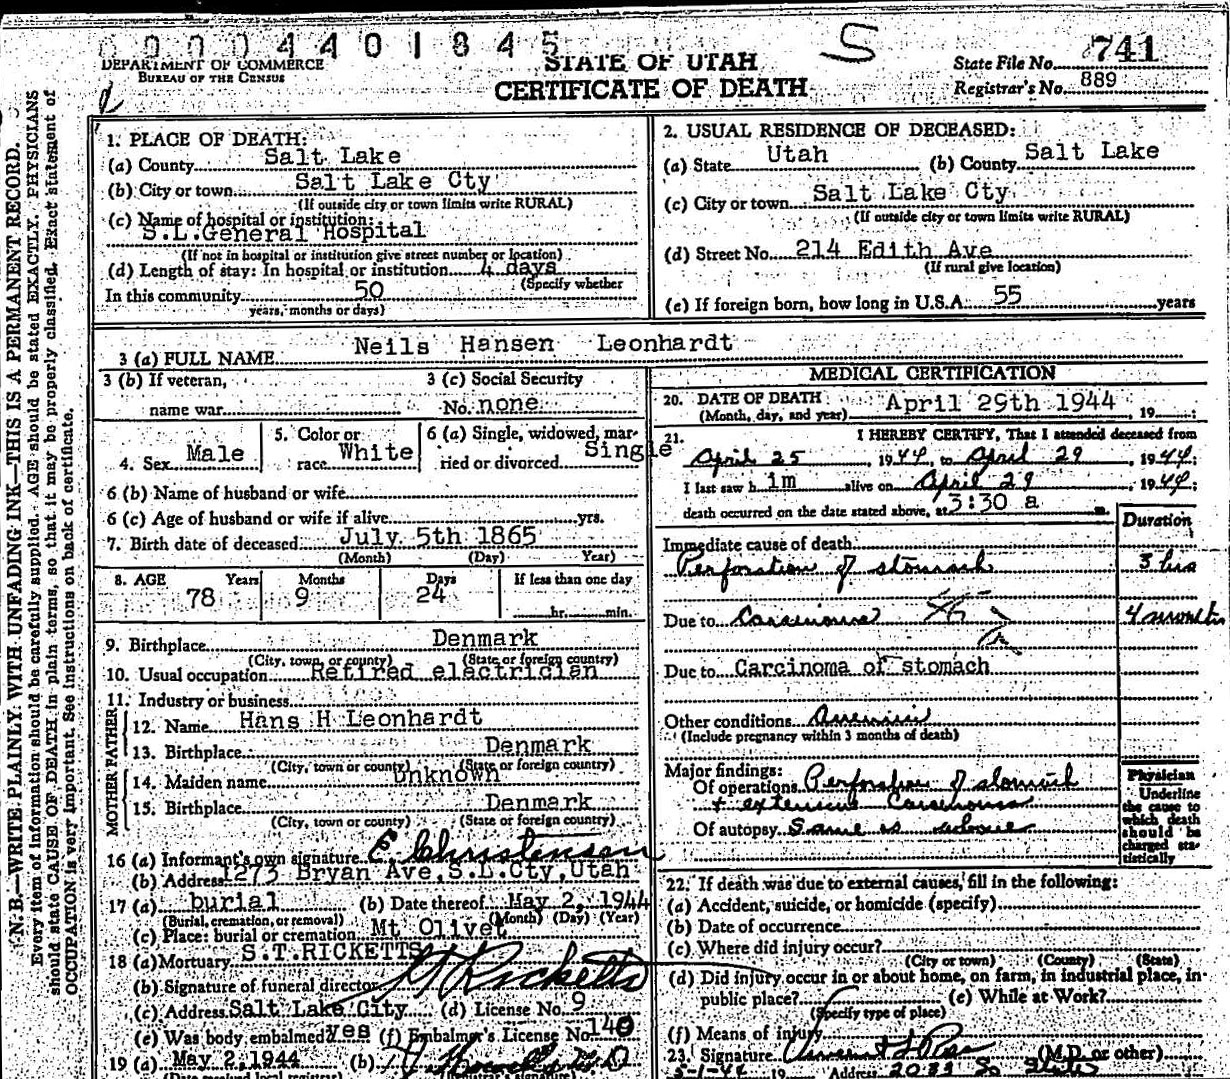 0 0 0 0 4 4 0 1 8 4 5
S
DEPARTMENT OF COMMERCE
BUREAU OF THE CENSUS
STATE OF UTAH
CERTIFICATE OF DEATH
State File No. 741
Registrar's No. 889
N. B.—WRITE PLAINLY, WITH UNFADING INK—THIS IS A PERMANENT RECORD.
Every item of information should be carefully supplied. AGE should be stated EXACTLY. PHYSICIANS
should state CAUSE OF DEATH in plain terms, so that it may be properly classified. Exact statement of
OCCUPATION is very important. See instructions on back of certificate.
1. PLACE OF DEATH:
(a) County Salt Lake
(b) City or town Salt Lake Cty
(If outside city or town limits write RURAL)
(c) Name of hospital or institution:
S.L.General Hospital
(If not in hospital or institution give street number or location)
(d) Length of stay: In hospital or institution 4 days
(Specify whether
In this community 50
years, months or days)
2. USUAL RESIDENCE OF DECEASED:
(a) State Utah (b) County Salt Lake
(c) City or town Salt Lake Cty
(If outside city or town limits write RURAL)
(d) Street No. 214 Edith Ave
(If rural give location)
(e) If foreign born, how long in U.S.A. 55 years
3 (a) FULL NAME Neils Hansen Leonhardt
3 (b) If veteran,
name war
3 (c) Social Security
No. none
4. Sex Male
5. Color or
race White
6 (a) Single, widowed, mar-
ried or divorced Single
6 (b) Name of husband or wife
6 (c) Age of husband or wife if alive yrs.
7. Birth date of deceased July 5th 1865
(Month) (Day) Year)
8. AGE Years Months Days If less than one day
78 9 24 hr. min.
9. Birthplace Denmark
(City, town or county) (State or foreign country)
10. Usual occupation Retired electrician
11. Industry or business
FATHER
12. Name Hans H Leonhardt
13. Birthplace Denmark
(City, town or county) (State or foreign country)
MOTHER
14. Maiden name Unknown
15. Birthplace Denmark
(City, town or county) (State or foreign country)
16 (a) Informant's own signature E Christensen
(b) Address 1273 Bryan Ave,S.L.Cty,Utah
17 (a) burial (b) Date thereof May 2, 1944
(Burial, cremation, or removal) (Month) (Day) (Year)
(c) Place: burial or cremation Mt Olivet
18 (a) Mortuary S.T.RICKETTS
(b) Signature of funeral director Ricketts
(c) Address Salt Lake City (d) License No. 9
(e) Was body embalmed? yes (f) Embalmer's License No. 140
19 (a) May 2,1944 (b)
MEDICAL CERTIFICATION
20. DATE OF DEATH April 29th 1944
(Month, day, and year) , 19 ;
21. I HEREBY CERTIFY, That I attended deceased from
April 25 , 1944, to April 29 , 1944;
I last saw him alive on April 29 , 1944;
death occurred on the date stated above, at 3:30 a m.
Duration
Immediate cause of death
Perforation of stomach 3 hrs
Due to Carcinoma 4 months
Due to Carcinoma of stomach
Other conditions Anemia
(Include pregnancy within 3 months of death)
Major findings:
Of operations Perforation of stomach
+ extensive Carcinoma
Of autopsy Same as above
Physician
Underline
the cause to
which death
should be
charged sta-
tistically
22. If death was due to external causes, fill in the following:
(a) Accident, suicide, or homicide (specify)
(b) Date of occurrence
(c) Where did injury occur?
(City or town) (County) (State)
(d) Did injury occur in or about home, on farm, in industrial place, in
public place? (e) While at Work?
(Specify type of place)
(f) Means of injury
23. Signature (M.D. or other)
5-1-44 19 Address 2033 So State